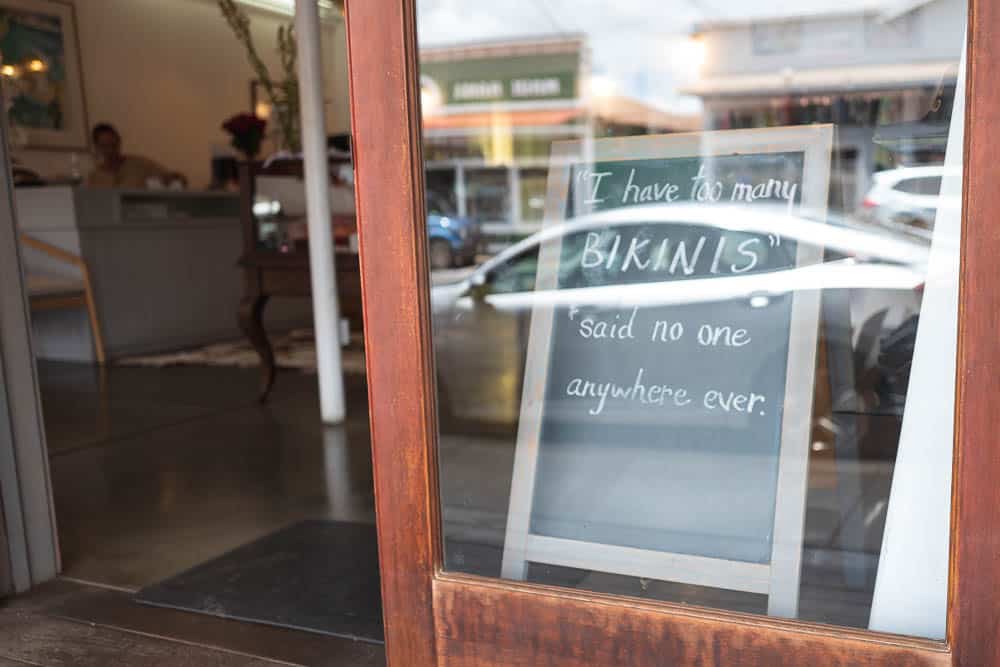 "I have too many
BIKINIS"
*said no one
anywhere ever.